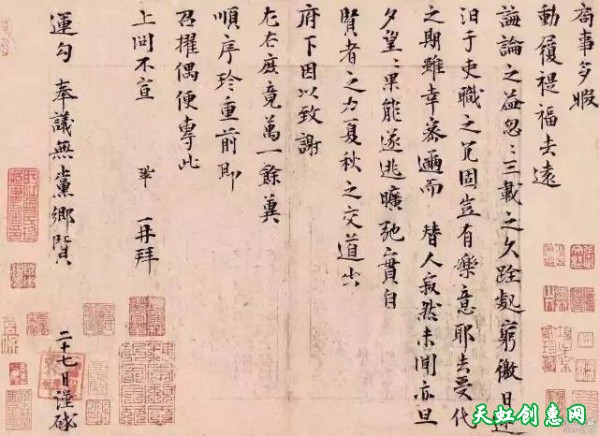 局事多暇
動履禔福去遠
誨論之益忽〻三載之久跧處窮徼日迷
汨于吏職之冗固豈有樂意耶去受代
之期雖幸密邇而 替人寂然未聞亦旦
夕望〻果能遂逃曠弛實自
賢者之力夏秋之交道出
府下因以致謝
左右庶竟萬一餘冀
順序珍重前即
召擢偶便專此
上問不宣 鞏 再拜
運勾 奉議無黨鄉賢
二十七日謹啟
天虹创惠网